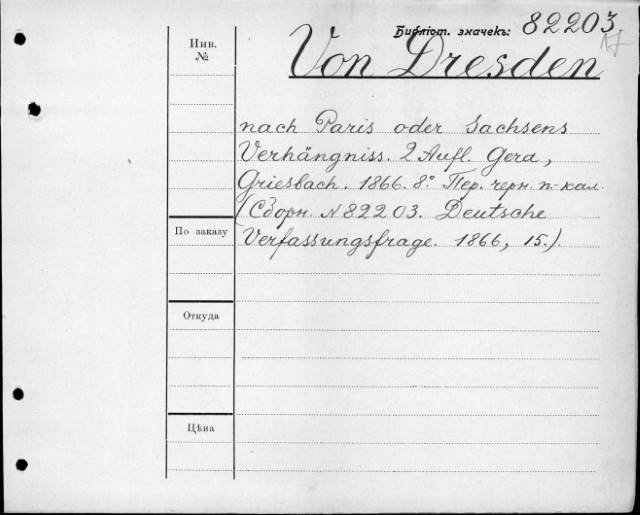 Библіот. значекъ: 82203
17
Инв.
№
Von Dresden
nach Paris oder Sachsens
Verhängniss. 2 Aufl. Gera,
Griesbach. 1866. 8° Пер. черн. п-кал.
(Сборн. N 82203. Deutsche
Verfassungsfrage. 1866, 15.).
По заказу
Откуда
Цѣна